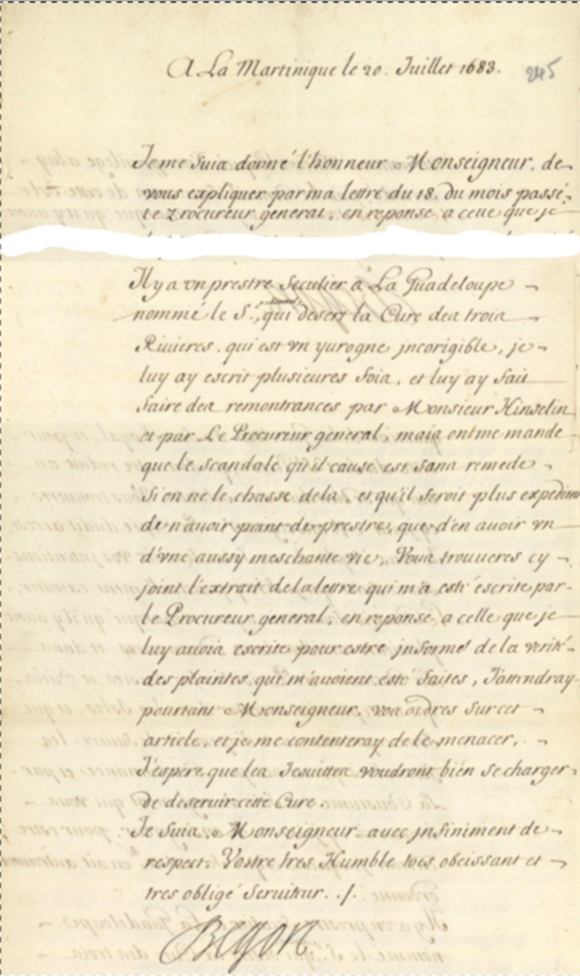 A La Martinique le 20. Juillet 1683.
245
Je me suis donné l'honneur Monseigneur, de
vous expliquer par ma lettre du 18. du mois passé,
Le Procureur general, en reponse a celle que je
Il y a vn prestre Seculier a La Guadeloupe
nommé le S.r, qui desert la Cure des trois
Riuieres, qui est vn yurogne jncorigible, je
luy ay escrit plusieures fois, et luy ay fait
faire des remontrances par Monsieur Hinselin
et par Le Procureur general, mais on me mande
que le scandale qu'il cause est sans remede
si on ne le chasse de la, et qu'il seroit plus expedient
de n'auoir point de prestre, que d'en auoir vn
d'vne aussy meschante vie, Vous trouueres cy
joint l'extrait de la lettre qui m'a esté escrite par
le Procureur general, en reponse a celle que je
luy auois escrite pour estre jnformé de la verité
des plaintes qui m'auoient esté faites, J'attendray
pourtant Monseigneur, vos ordres sur cet
article, et je me contenteray de le menacer,
J'espere que les Jesuittes voudront bien se charger
de deseruir cette Cure
Je suis, Monseigneur auec jnfiniment de
respect, Vostre tres Humble tres obeissant et
tres obligé Seruiteur. ./.
Begon